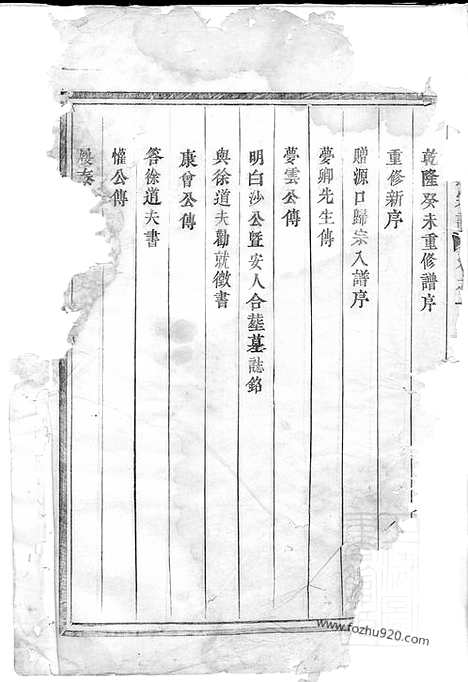 乾隆癸未重修譜序
重修新序
贈源口歸宗入譜序
夢卿先生傳
夢雲公傳
明白沙公暨安人合葬墓誌銘
與徐道夫勸就徵書
康會公傳
答徐道夫書
懽公傳
www.fozhu920.com